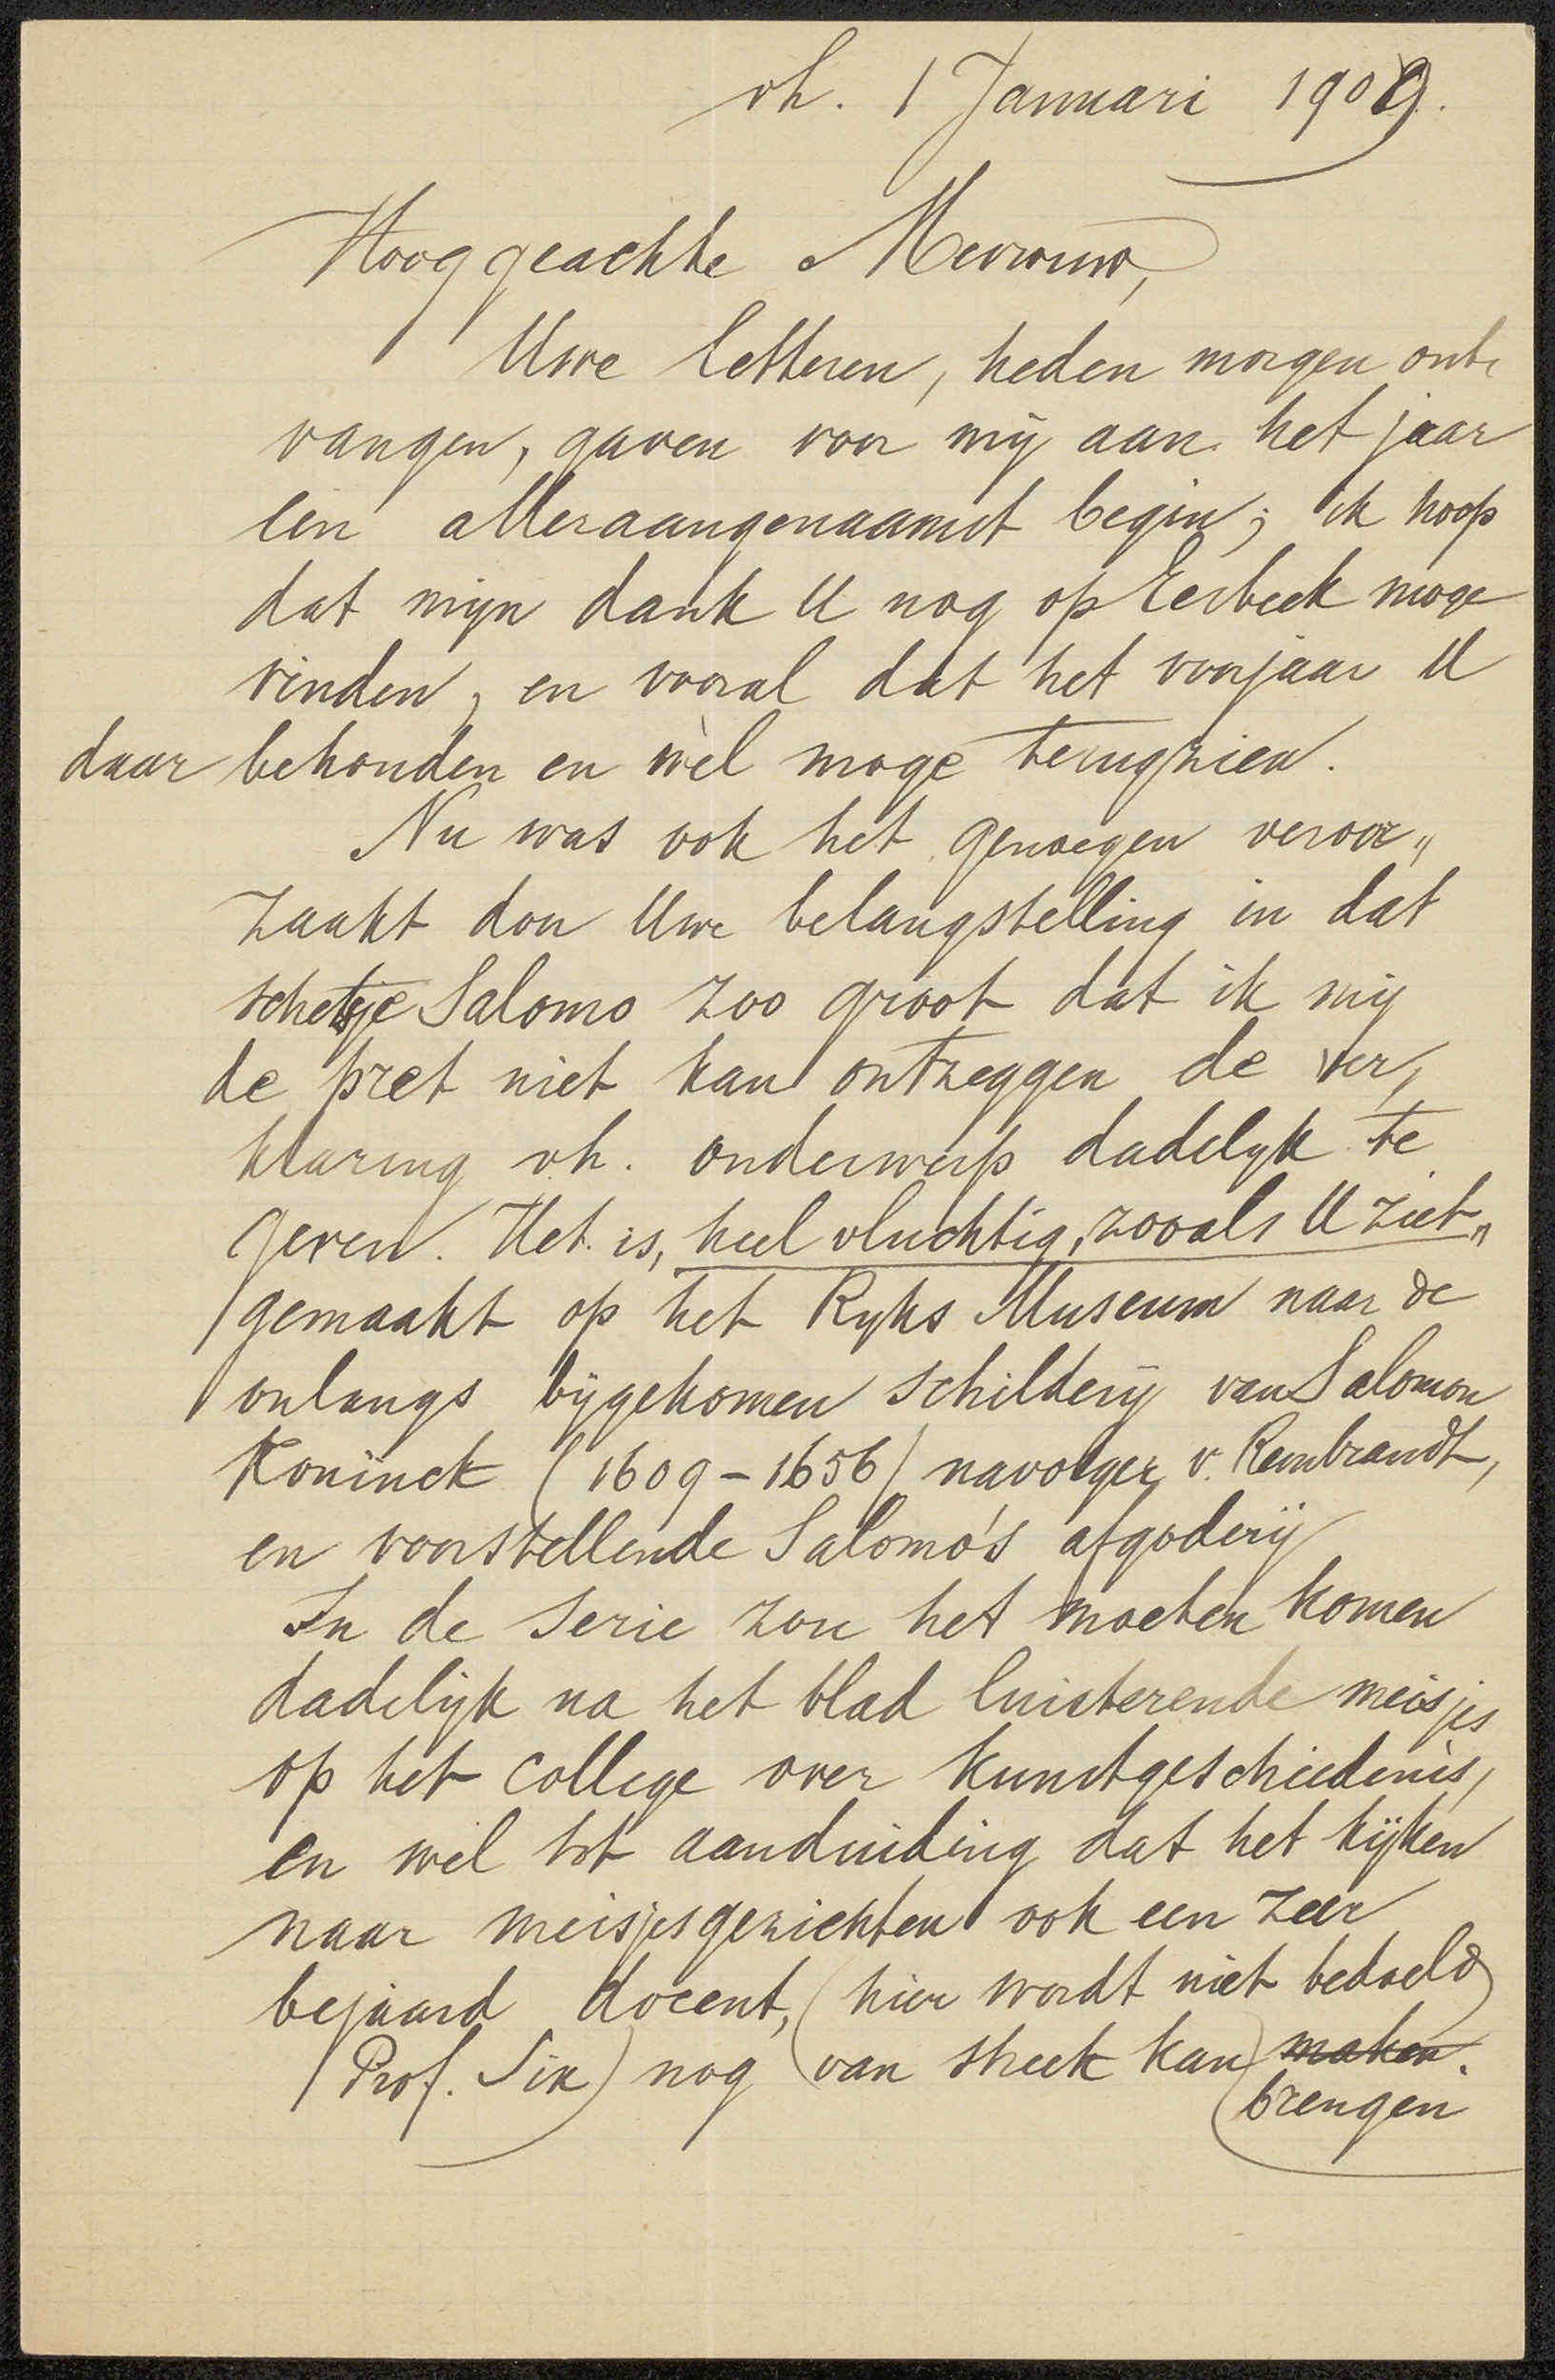 vh. 1 Januari 1909.
Hooggeachte Mevrouw,
Uwe letteren, heden morgen ont-
vangen, gaven voor mij aan het jaar
een alleraangenaamst begin; ik hoop
dat mijn dank U nog op Eerbeek moge
vinden, en vooral dat het voorjaar U
daar behouden en wèl moge terugzien.
Nu was ook het genoegen veroor„
zaakt door Uwe belangstelling in dat
schetsje Salomo zoo groot dat ik mij
de pret niet kan ontzeggen de ver,
klaring v.h. onderwerp dadelijk te
geven. Het is, heel vluchtig, zooals U ziet„
gemaakt op het Ryks Museum naar de
onlangs bijgekomen schilderij van Salomon
Koninck (1609-1656) navolger v. Rembrandt,
en voorstellende Salomo's afgoderij
In de serie zou het moeten komen
dadelijk na het blad luisterende meisjes
op het college over kunstgeschiedenis,
en wel tot aanduiding dat het kijken
naar meisjesgezichten ook een zeer
bejaard docent, (hier wordt niet bedoeld
Prof. Six) nog van streek kan maken.
brengen